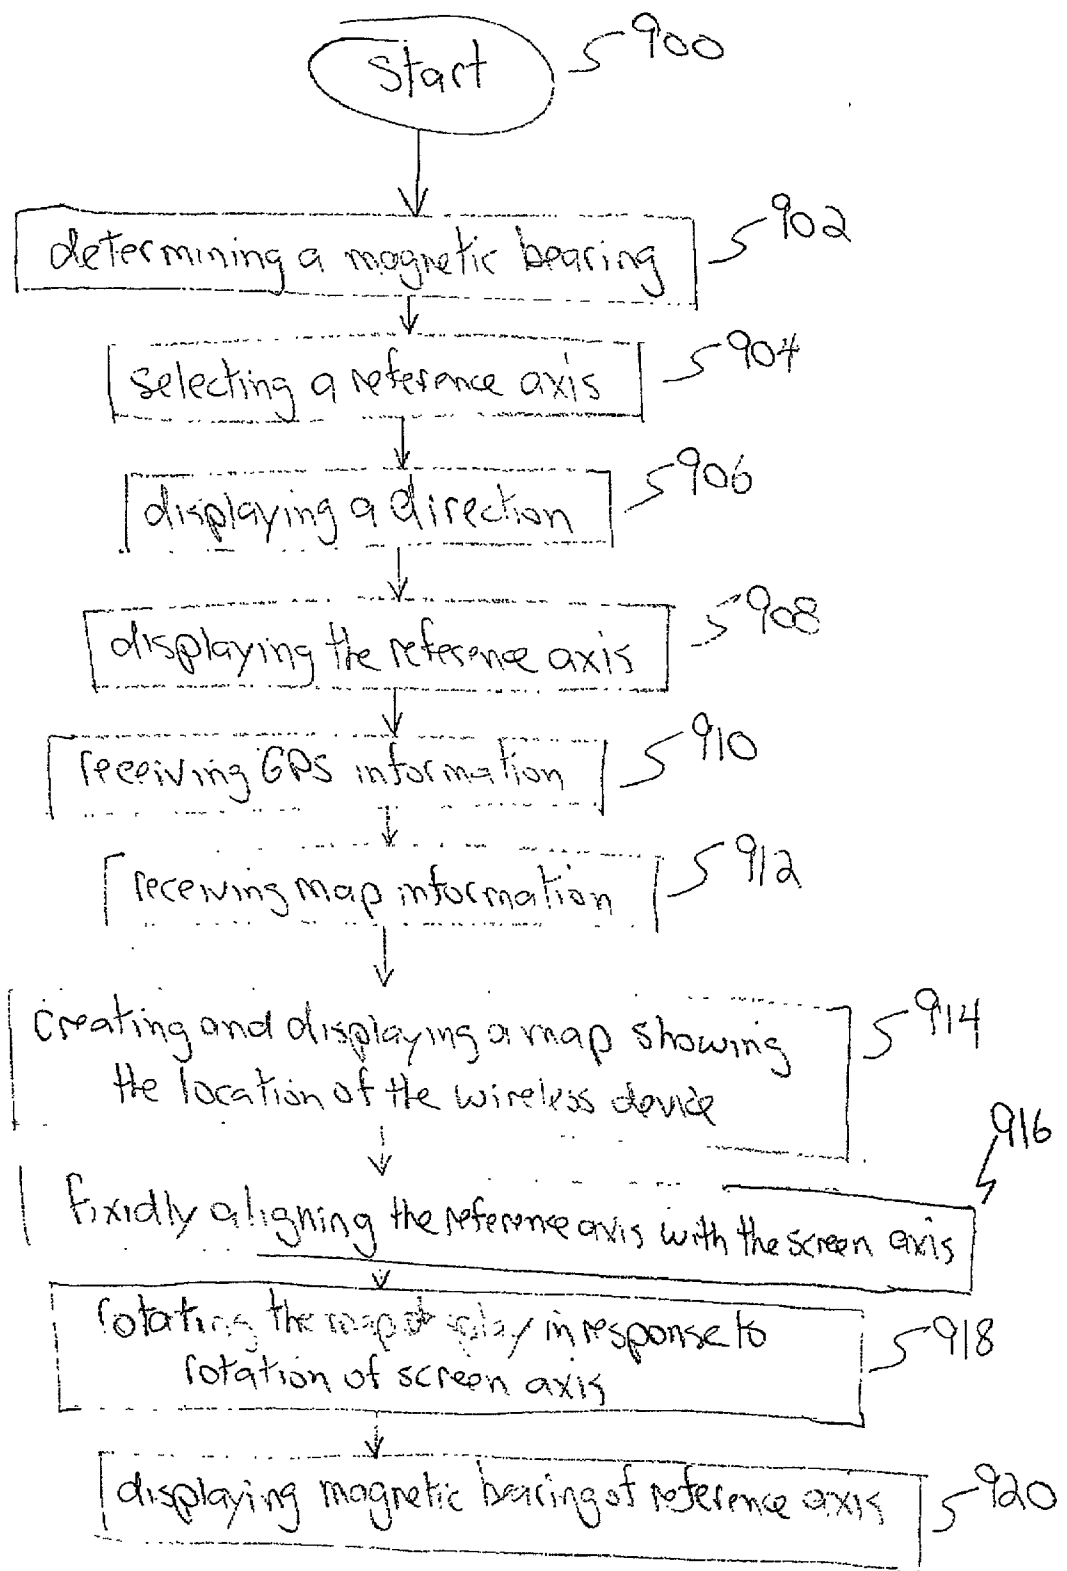 Start 900
determining a magnetic bearing 902
selecting a reference axis 904
displaying a direction 906
displaying the reference axis 908
receiving GPS information 910
receiving map information 912
creating and displaying a map showing 914
the location of the wireless device
916
fixidly aligning the reference axis with the screen axis
rotating the map display in response to
rotation of screen axis 918
displaying magnetic bearing of reference axis 920